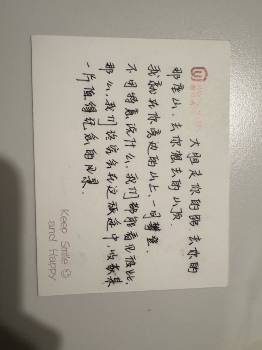 大胆走你的路,去你的
那座山,去你想去的山顶.
我就在你旁边的山上,一同攀登.
不用特意说什么,我们都能看见彼此.
那么,我们终究会在这旅途中,收获某
一片值得纪念的风景.
Keep Smile
and Happy